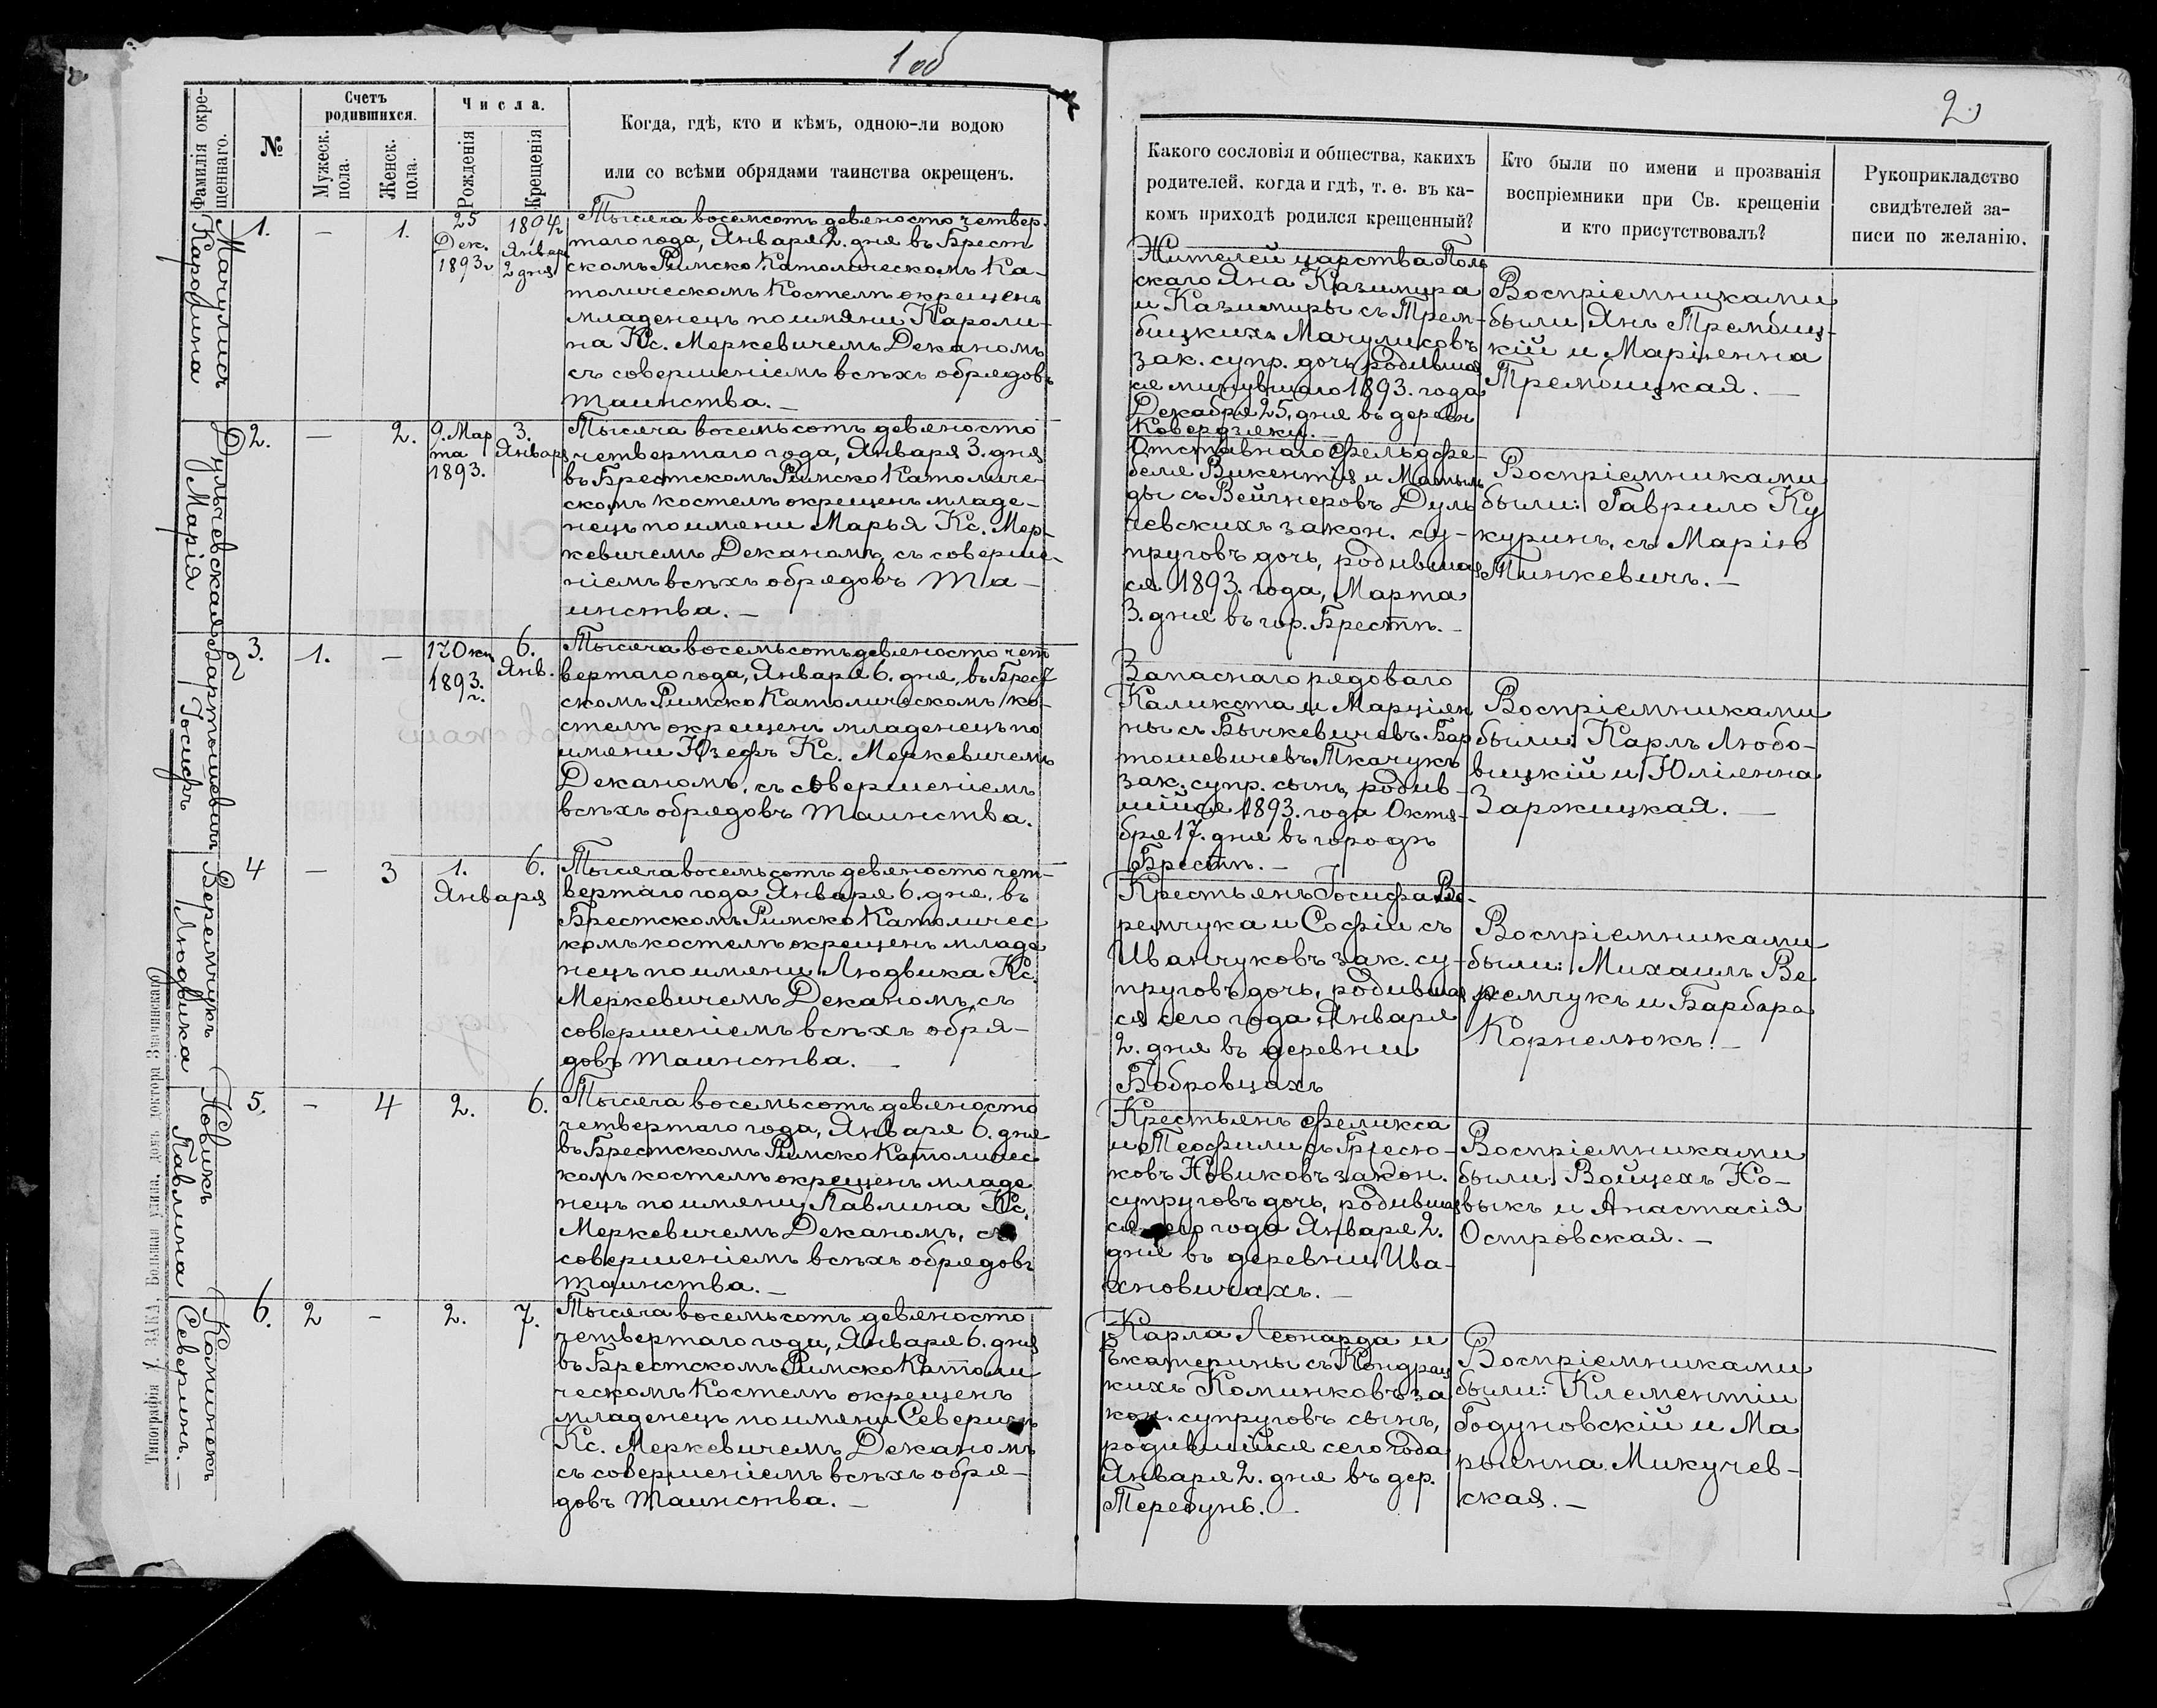 1 об
2
Фамилія окре-
щеннаго.
№
Счетъ
родившихся.
Мужеск.
пола.
Женск.
пола.
Числа.
Рожденія
Крещенія
Когда, гдѣ, кто и кѣмъ, одною-ли водою
или со всѣми обрядами таинства окрещенъ.
Какого сословія и общества, какихъ
родителей, когда и гдѣ, т. е. въ ка-
комъ приходѣ родился крещенный?
Кто были по имени и прозванія
воспріемники при Св. крещеніи
и кто присутствовалъ?
Рукоприкладство
свидѣтелей за-
писи по желанію.
Мачулисъ
Каролина
1.
—
1.
25
Дек.
1893 г
1894 г
Январ
2 дня
Тысяча восемсотъ девяносто четвер-
таго года, Января 2. дня въ Брест
скомъ Римско Католическомъ Ка-
толическомъ Костелѣ окрещенъ
младенецъ по имяни Кароли-
на Кс. Меркевичемъ Деканомъ
съ совершеніемъ всѣхъ обрядовъ
Таинства. —
Жителей царства Поль
скаго Яна Казимира
и Казимиры съ Трем-
бицкихъ Мачулисовъ
зак. супр. дочь, родивша
ся минувшаго 1893. года
Декабря 25. дня въ деревн
Ковердзяки. —
Воспріемниками
были Янъ Трембиц-
кій и Маріянна
Трембицкая. —
Дульчевская
Марія
2.
—
2.
9. Мар
та
1893.
3.
Января
Тысяча восемьсотъ девяносто
четвертаго года, Января 3. дня
въ Брестскомъ Римско Католиче-
скомъ костелѣ окрещенъ младе-
нецъ по имени Марья Кс. Мер-
кевичемъ Деканомъ, съ соверше-
ніемъ всѣхъ обрядовъ Та-
инства. —
Отставнаго Фельдфе-
беля Викентія и Матиль
ды съ Вейгнеровъ Дуль
чевскихъ закон. су-
пруговъ дочь, родившая
ся 1893. года, Марта
3. дня въ гор. Брестѣ. —
Воспріемниками
были: Гаврило Ку
куринъ, съ Маріею
Тинкевичъ. —
Бартошевичъ
Іосифъ
3.
1.
—
17 Окт
1893.
г.
6.
Янв.
Тысяча восемьсотъ девяносто чет
вертаго года, Января 6. дня, въ Брест
скомъ Римско Католическомъ ко-
стелѣ окрещенъ младенецъ по
имени Юзефъ Кс. Меркевичемъ
Деканомъ, съ совершеніемъ
всѣхъ обрядовъ Таинства.
Запаснаго рядоваго
Каликста и Марціян
ны съ Бычкевичевъ Бар
тошевичевъ Ткачукъ
зак. супр. сынъ, родив-
шійся 1893. года Октя-
бря 17. дня въ городѣ
Брестѣ. —
Воспріемниками
были: Карлъ Любо-
вицкій и Юліянна
Заржицкая. —
Веремчукъ
Людвика
4
—
3
1.
Января
6.
Тысяча восемьсотъ девяносто чет-
вертаго года Января 6. дня, въ
Брестскомъ Римско Католичес
комъ костелѣ окрещенъ младе
нецъ по имяни Людвика Кс.
Меркевичемъ Деканомъ, съ
совершеніемъ всѣхъ обря-
довъ Таинства. —
Крестьянъ Іосифа Ве-
ремчука и Софіи съ
Иванчуковъ зак. су-
пруговъ дочь, родившая
ся сего года Января
2. дня въ деревни
Бобровцахъ
Воспріемниками
были: Михаилъ Ве
ремчукъ и Барбара
Корнелюкъ. —
Новикъ
Павлина
5.
—
4
2.
6.
Тысяча восемьсотъ девяносто
четвертаго года, Января 6. дня
въ Брестскомъ Римско Католичес
комъ костелѣ окрещенъ младе
нецъ по имяни Павлина Кс.
Меркевичемъ Деканомъ, съ
совершеніемъ всѣхъ обрядовъ
Таинства. —
Крестьянъ Феликса
и Теофили съ
ковъ Новиковъ закон.
супруговъ дочь, родившая
ся сего года Января 2.
дня въ деревни Ива-
хновичахъ. —
Воспріемниками
были: Войцехъ Но-
выкъ и Анастасія
Островская. —
Коминекъ
Северинъ. —
6.
2
—
2.
7.
Тысяча восемьсотъ девяносто
четвертаго года, Января 6. дня
въ Брестскомъ Римско Католи
ческомъ Костелѣ окрещенъ
младенецъ по имяни Северинъ
Кс. Меркевичемъ Деканомъ
съ совершеніемъ всѣхъ обря-
довъ Таинства. —
Карла Леонарда и
Екатерины съ Кондрац
кихъ Коминковъ за
кон. супруговъ сынъ,
родившійся сего года
Января 2. дня въ дер.
Тересунь. —
Воспріемниками
были: Клементіи
Годуновскій и Ма
рыянна Микучев-
ская. —